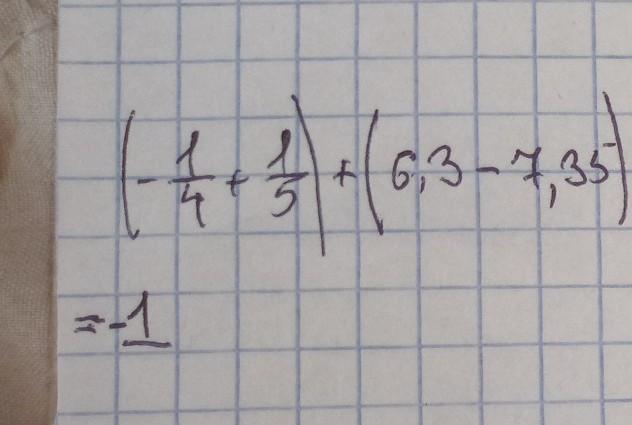 (-1/4 + 1/5) + (6,3 - 7,35)
= -1